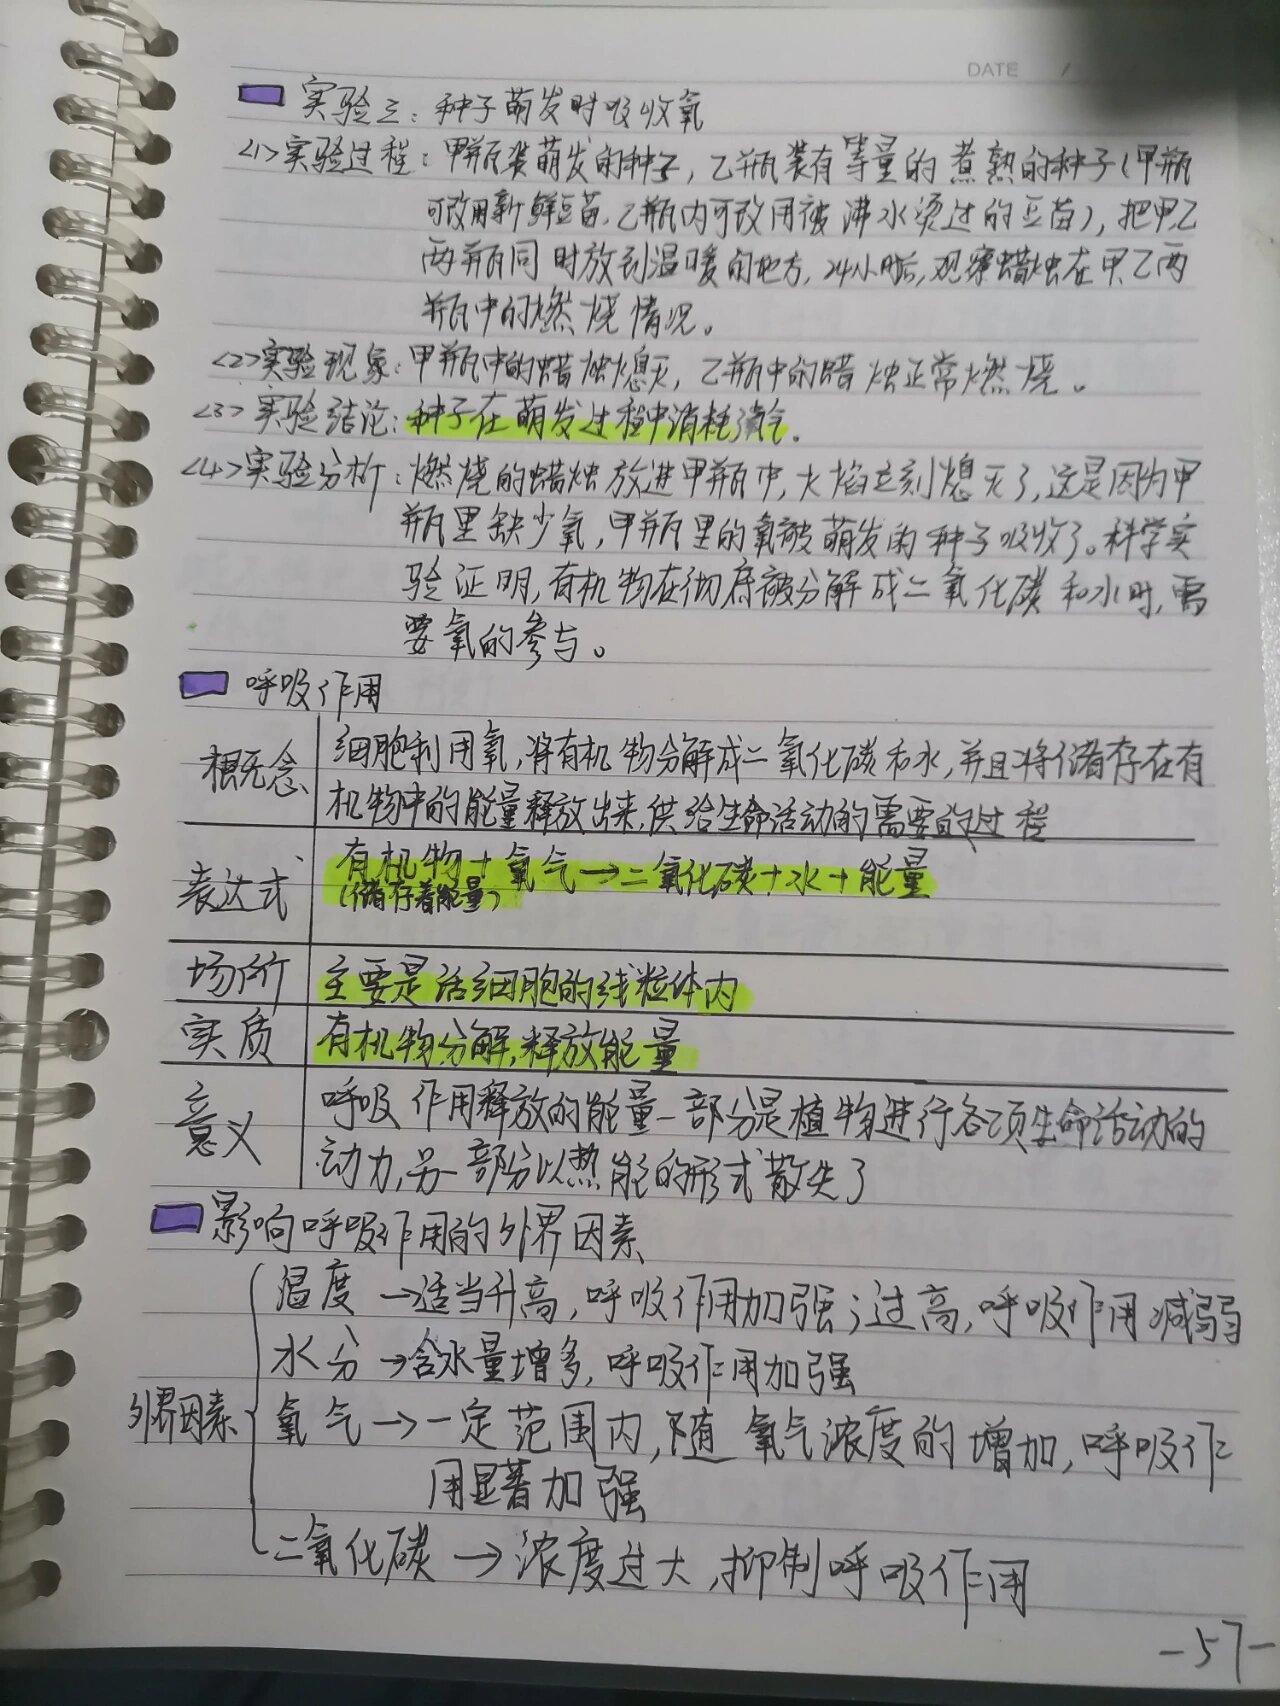 DATE /
实验三：种子萌发时吸收氧
<1>实验过程：甲瓶装萌发的种子，乙瓶装有等量的煮熟的种子（甲瓶
可改用新鲜豆苗，乙瓶内可改用被沸水烫过的豆苗），把甲乙
两瓶同时放到温暖的地方，24小时后，观察蜡烛在甲乙两
瓶中的燃烧情况。
<2>实验现象：甲瓶中的蜡烛熄灭，乙瓶中的蜡烛正常燃烧。
<3>实验结论：种子在萌发过程中消耗氧气。
<4>实验分析：燃烧的蜡烛放进甲瓶中，火焰立刻熄灭了，这是因为甲
瓶里缺少氧，甲瓶里的氧被萌发的种子吸收了。科学实
验证明，有机物在彻底被分解成二氧化碳和水时，需
要氧的参与。
呼吸作用
概念 细胞利用氧，将有机物分解成二氧化碳和水，并且将储存在有
机物中的能量释放出来，供给生命活动的需要的过程
表达式 有机物+氧气→二氧化碳+水+能量
（储存着能量）
场所 主要是活细胞的线粒体内
实质 有机物分解，释放能量
意义 呼吸作用释放的能量一部分是植物进行各项生命活动的
动力，另一部分以热能的形式散失了
影响呼吸作用的外界因素
温度→适当升高，呼吸作用加强；过高，呼吸作用减弱
水分→含水量增多，呼吸作用加强
外界因素
氧气→一定范围内，随氧气浓度的增加，呼吸作
用显著加强
二氧化碳→浓度过大，抑制呼吸作用
-57-